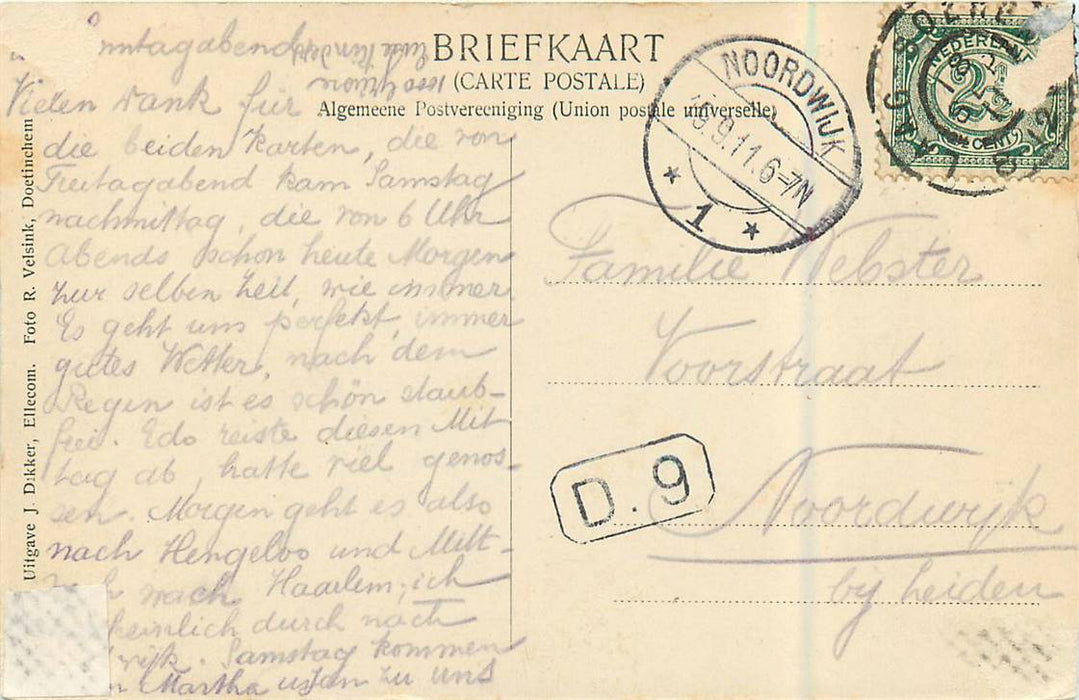 BRIEFKAART
(CARTE POSTALE)
Algemeene Postvereeniging (Union postale universelle)
Uitgave J. Dikker, Ellecom. Foto R. Velsink, Doetinchem
NOORDWIJK
5.9.11.6-7N
1
NEDERLAND
2½
CENT
D.9
Vielen Dank für
die beiden Karten, die von
Freitagabend kam Samstag
nachmittag, die von 6 Uhr
Abends schon heute Morgen
zur selben Zeit, wie immer.
Es geht uns perfekt, immer
gutes Wetter, nach dem
Regen ist es schön staub-
frei. Edo reiste diesen Mit
tag ab, hatte viel genos-
sen. Morgen geht es also
nach Hengeloo und Mitt-
nach Haarlem; ich
durch nach
Samstag kommen
Martha u Jan zu uns
Familie Webster
Voorstraat
Noordwijk
bij Leiden